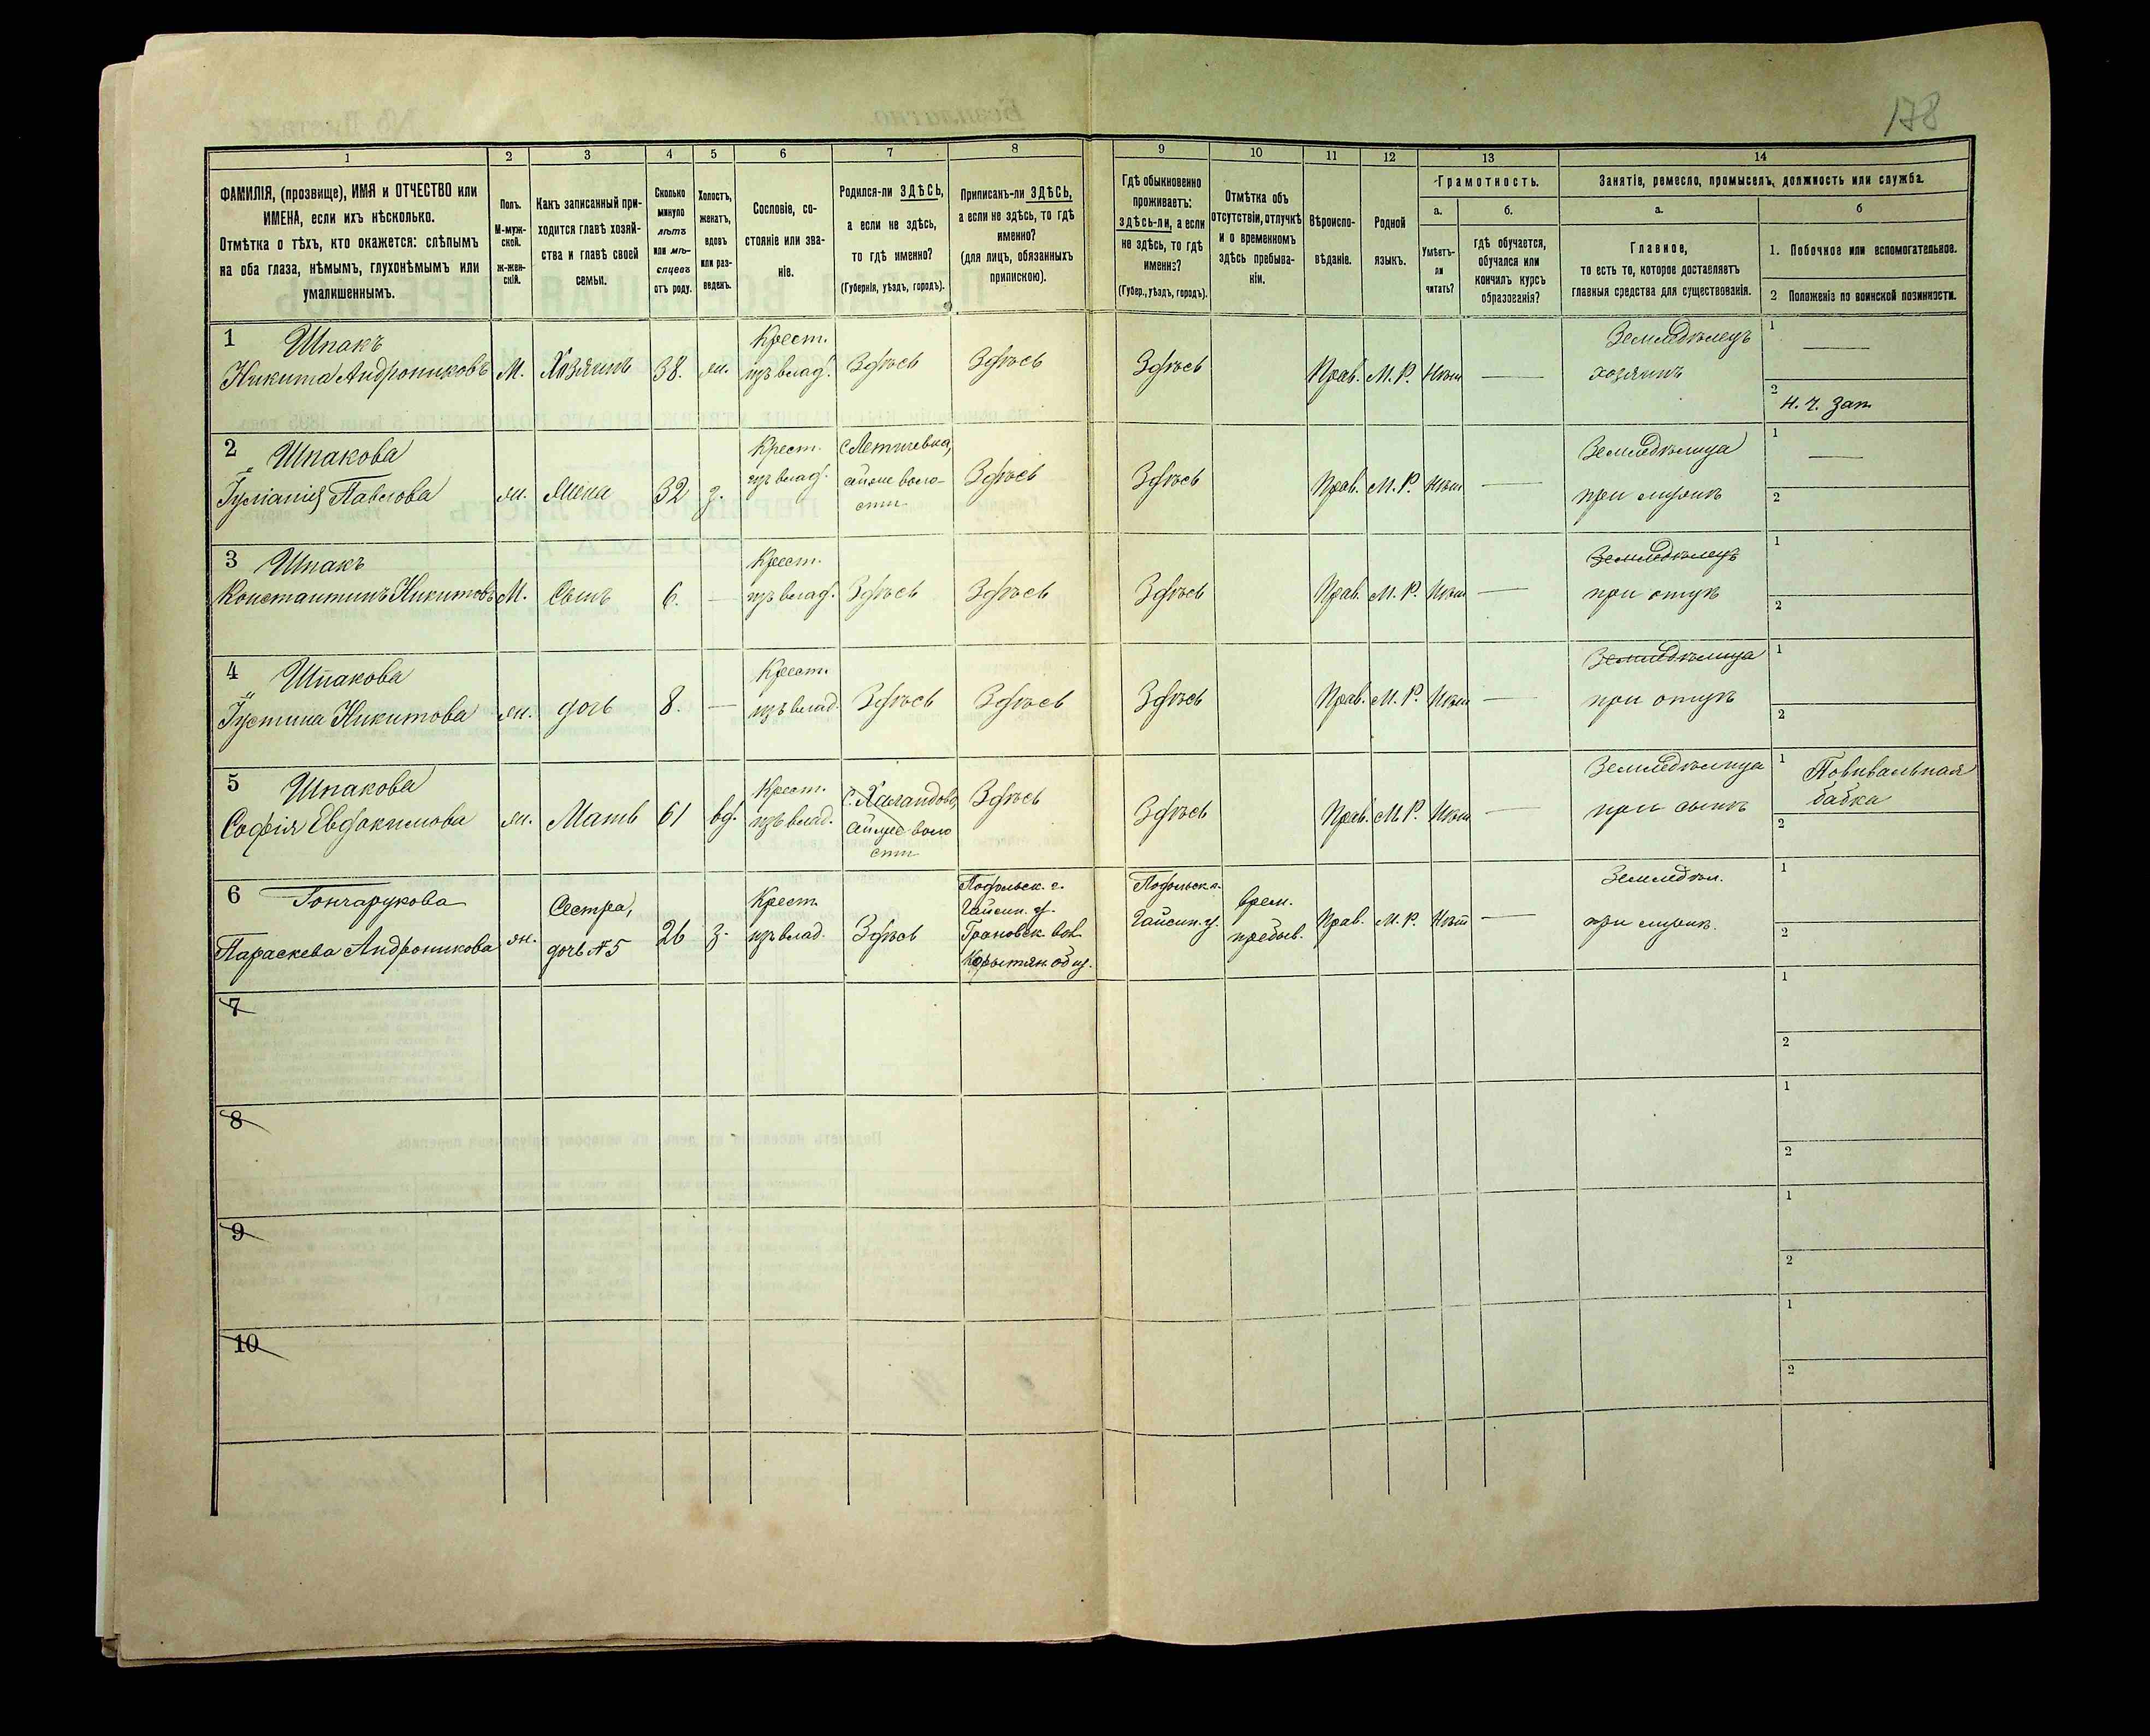 178
1 2 3 4 5 6 7 8 9 10 11 12 13 14
ФАМИЛІЯ, (прозвище), ИМЯ и ОТЧЕСТВО или
ИМЕНА, если ихъ нѣсколько.
Отмѣтка о тѣхъ, кто окажется: слѣпымъ
на оба глаза, нѣмымъ, глухонѣмымъ или
умалишеннымъ.
Полъ.
М-муж-
ской.
ж-жен-
скій.
Какъ записанный при-
ходится главѣ хозяй-
ства и главѣ своей
семьи.
Сколько
минуло
лѣтъ
или мѣ-
сяцевъ
отъ роду.
Холостъ,
женатъ,
вдовъ
или раз-
веденъ.
Сословіе, со-
стояніе или зва-
ніе.
Родился-ли ЗДѢСЬ,
а если не здѣсь,
то гдѣ именно?
(Губернія, уѣздъ, городъ).
Приписанъ-ли ЗДѢСЬ,
а если не здѣсь, то гдѣ
именно?
(для лицъ, обязанныхъ
припискою).
Гдѣ обыкновенно
проживаетъ:
здѣсь-ли, а если
не здѣсь, то гдѣ
именно?
(Губер., уѣздъ, городъ).
Отмѣтка объ
отсутствіи, отлучкѣ
и о временномъ
здѣсь пребыва-
ніи.
Вѣроиспо-
вѣданіе.
Родной
языкъ.
Грамотность.
а.
Умѣетъ-
ли
читать?
б.
гдѣ обучается,
обучался или
кончилъ курсъ
образованія?
Занятіе, ремесло, промыселъ, должность или служба.
а.
Главное,
то есть то, которое доставляетъ
главныя средства для существованія.
б
1. Побочное или вспомогательное.
2 Положеніе по воинской повинности.
1 Шпакъ
Никита Андрониковъ М. Хозяинъ 38. ж.
Крест.
изъ влад. Здѣсь Здѣсь Здѣсь Прав. М.Р. Нѣт —
Земледѣлецъ
хозяинъ
1 —
2 н. ч. зап.
2 Шпакова
Павлова ж. Жена 32 з.
Крест.
изъ влад.
с. Летичевка,
воло-
сти
Здѣсь Здѣсь Прав. М.Р. Нѣт —
Земледѣлица
при мужѣ
1 —
2
3 Шпакъ
Константинъ Никитовъ М. Сынъ 6. —
Крест.
изъ влад. Здѣсь Здѣсь Здѣсь Прав. М.Р. Нѣт —
Земледѣлецъ
при отцѣ
1
2
4 Шпакова
Іустина Никитова ж. дочь 8. —
Крест.
изъ влад. Здѣсь Здѣсь Здѣсь Прав. М.Р. Нѣт —
Земледѣлица
при отцѣ
1
2
5 Шпакова
Софія Евдокимова ж. Мать 61 вд.
Крест.
изъ влад.
воло
сти
Здѣсь Здѣсь Прав. М.Р. Нѣт —
Земледѣлица
при сынѣ
1 Повивальная
бабка
2
6 Гончарукова
Параскева Андроникова ж.
Сестра,
дочь №5
26 з.
Крест.
изъ влад. Здѣсь
Подольск. г.
Гайсин. у.
Грановск. вол.
общ.
Подольск. г.
Гайсин. у.
врем.
пребыв.
Прав. М.Р. Нѣт —
Земледѣл.
при мужѣ.
1
2
7
1
2
8
1
2
9
1
2
10
1
2